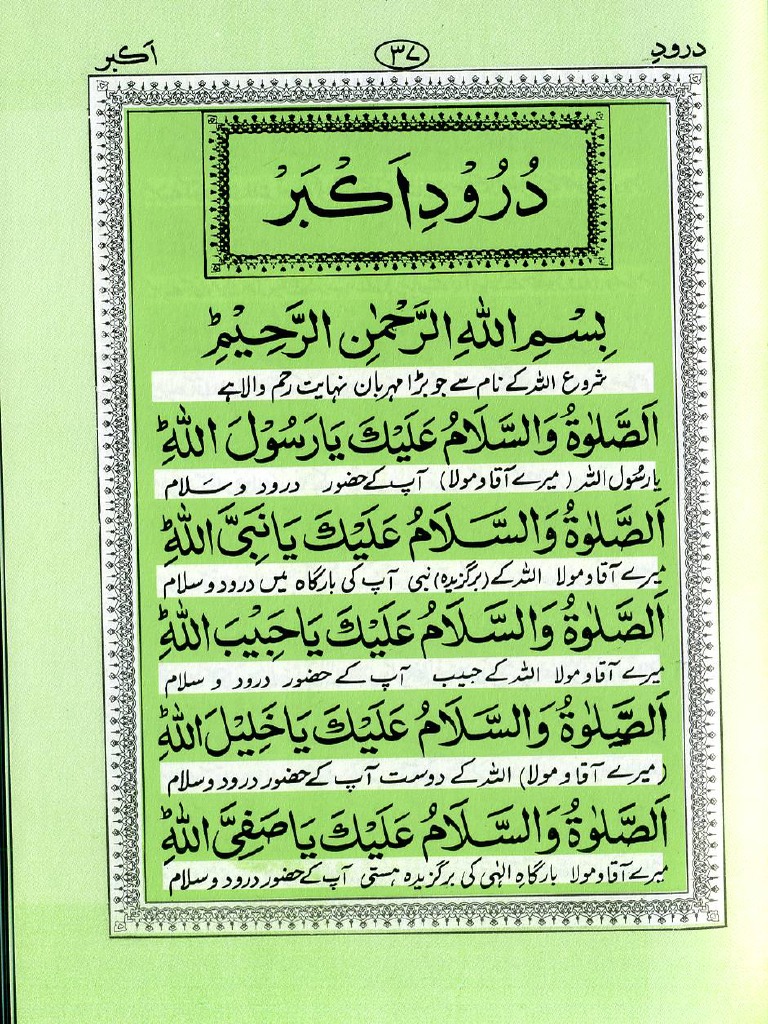 درودِ ۳۷ اَکبر
دُرُوْدِ اَکْبَرْ
بِسْمِ اللهِ الرَّحْمٰنِ الرَّحِيْمِ ؕ
شروع اللہ کے نام سے جو بڑا مہربان نہایت رحم والا ہے
اَلصَّلٰوةُ وَالسَّلَامُ عَلَيْكَ يَا رَسُوْلَ اللهِ ؕ
یا رسُول اللہ (میرے آقا و مولا) آپ کے حضور درود و سَلام
اَلصَّلٰوةُ وَالسَّلَامُ عَلَيْكَ يَا نَبِيَّ اللهِ ؕ
میرے آقا و مولا اللہ کے (برگزیدہ) نبی آپ کی بارگاہ میں درود و سلام
اَلصَّلٰوةُ وَالسَّلَامُ عَلَيْكَ يَا حَبِيْبَ اللهِ ؕ
میرے آقا و مولا اللہ کے حبیب آپ کے حضور درود و سلام
اَلصَّلٰوةُ وَالسَّلَامُ عَلَيْكَ يَا خَلِيْلَ اللهِ ؕ
(میرے آقا و مولا) اللہ کے دوست آپ کے حضور درود و سلام
اَلصَّلٰوةُ وَالسَّلَامُ عَلَيْكَ يَا صَفِيَّ اللهِ ؕ
میرے آقا و مولا بارگاہِ الٰہی کی برگزیدہ ہستی آپ کے حضور درود و سلام